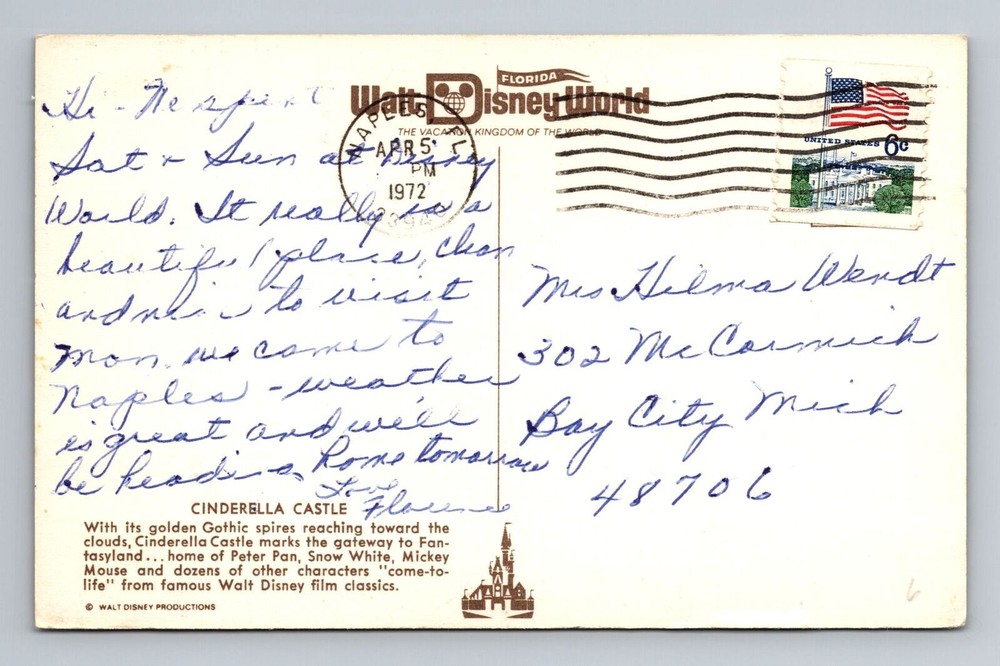 FLORIDA
Walt Disney World
THE VACATION KINGDOM OF THE WORLD
NAPLES FL
APR 5
PM
1972
UNITED STATES 6c
Hi - We spent
Sat + Sun at Disney
World. It really is a
beautiful place, clean
and to visit
Mon. we came to
Naples - weather
is great and will
be heading home tomorrow
Love
Florence
Mrs Hilma Wendt
302 McCormick
Bay City Mich
48706
CINDERELLA CASTLE
With its golden Gothic spires reaching toward the
clouds, Cinderella Castle marks the gateway to Fan-
tasyland... home of Peter Pan, Snow White, Mickey
Mouse and dozens of other characters "come-to-
life" from famous Walt Disney film classics.
© WALT DISNEY PRODUCTIONS
6